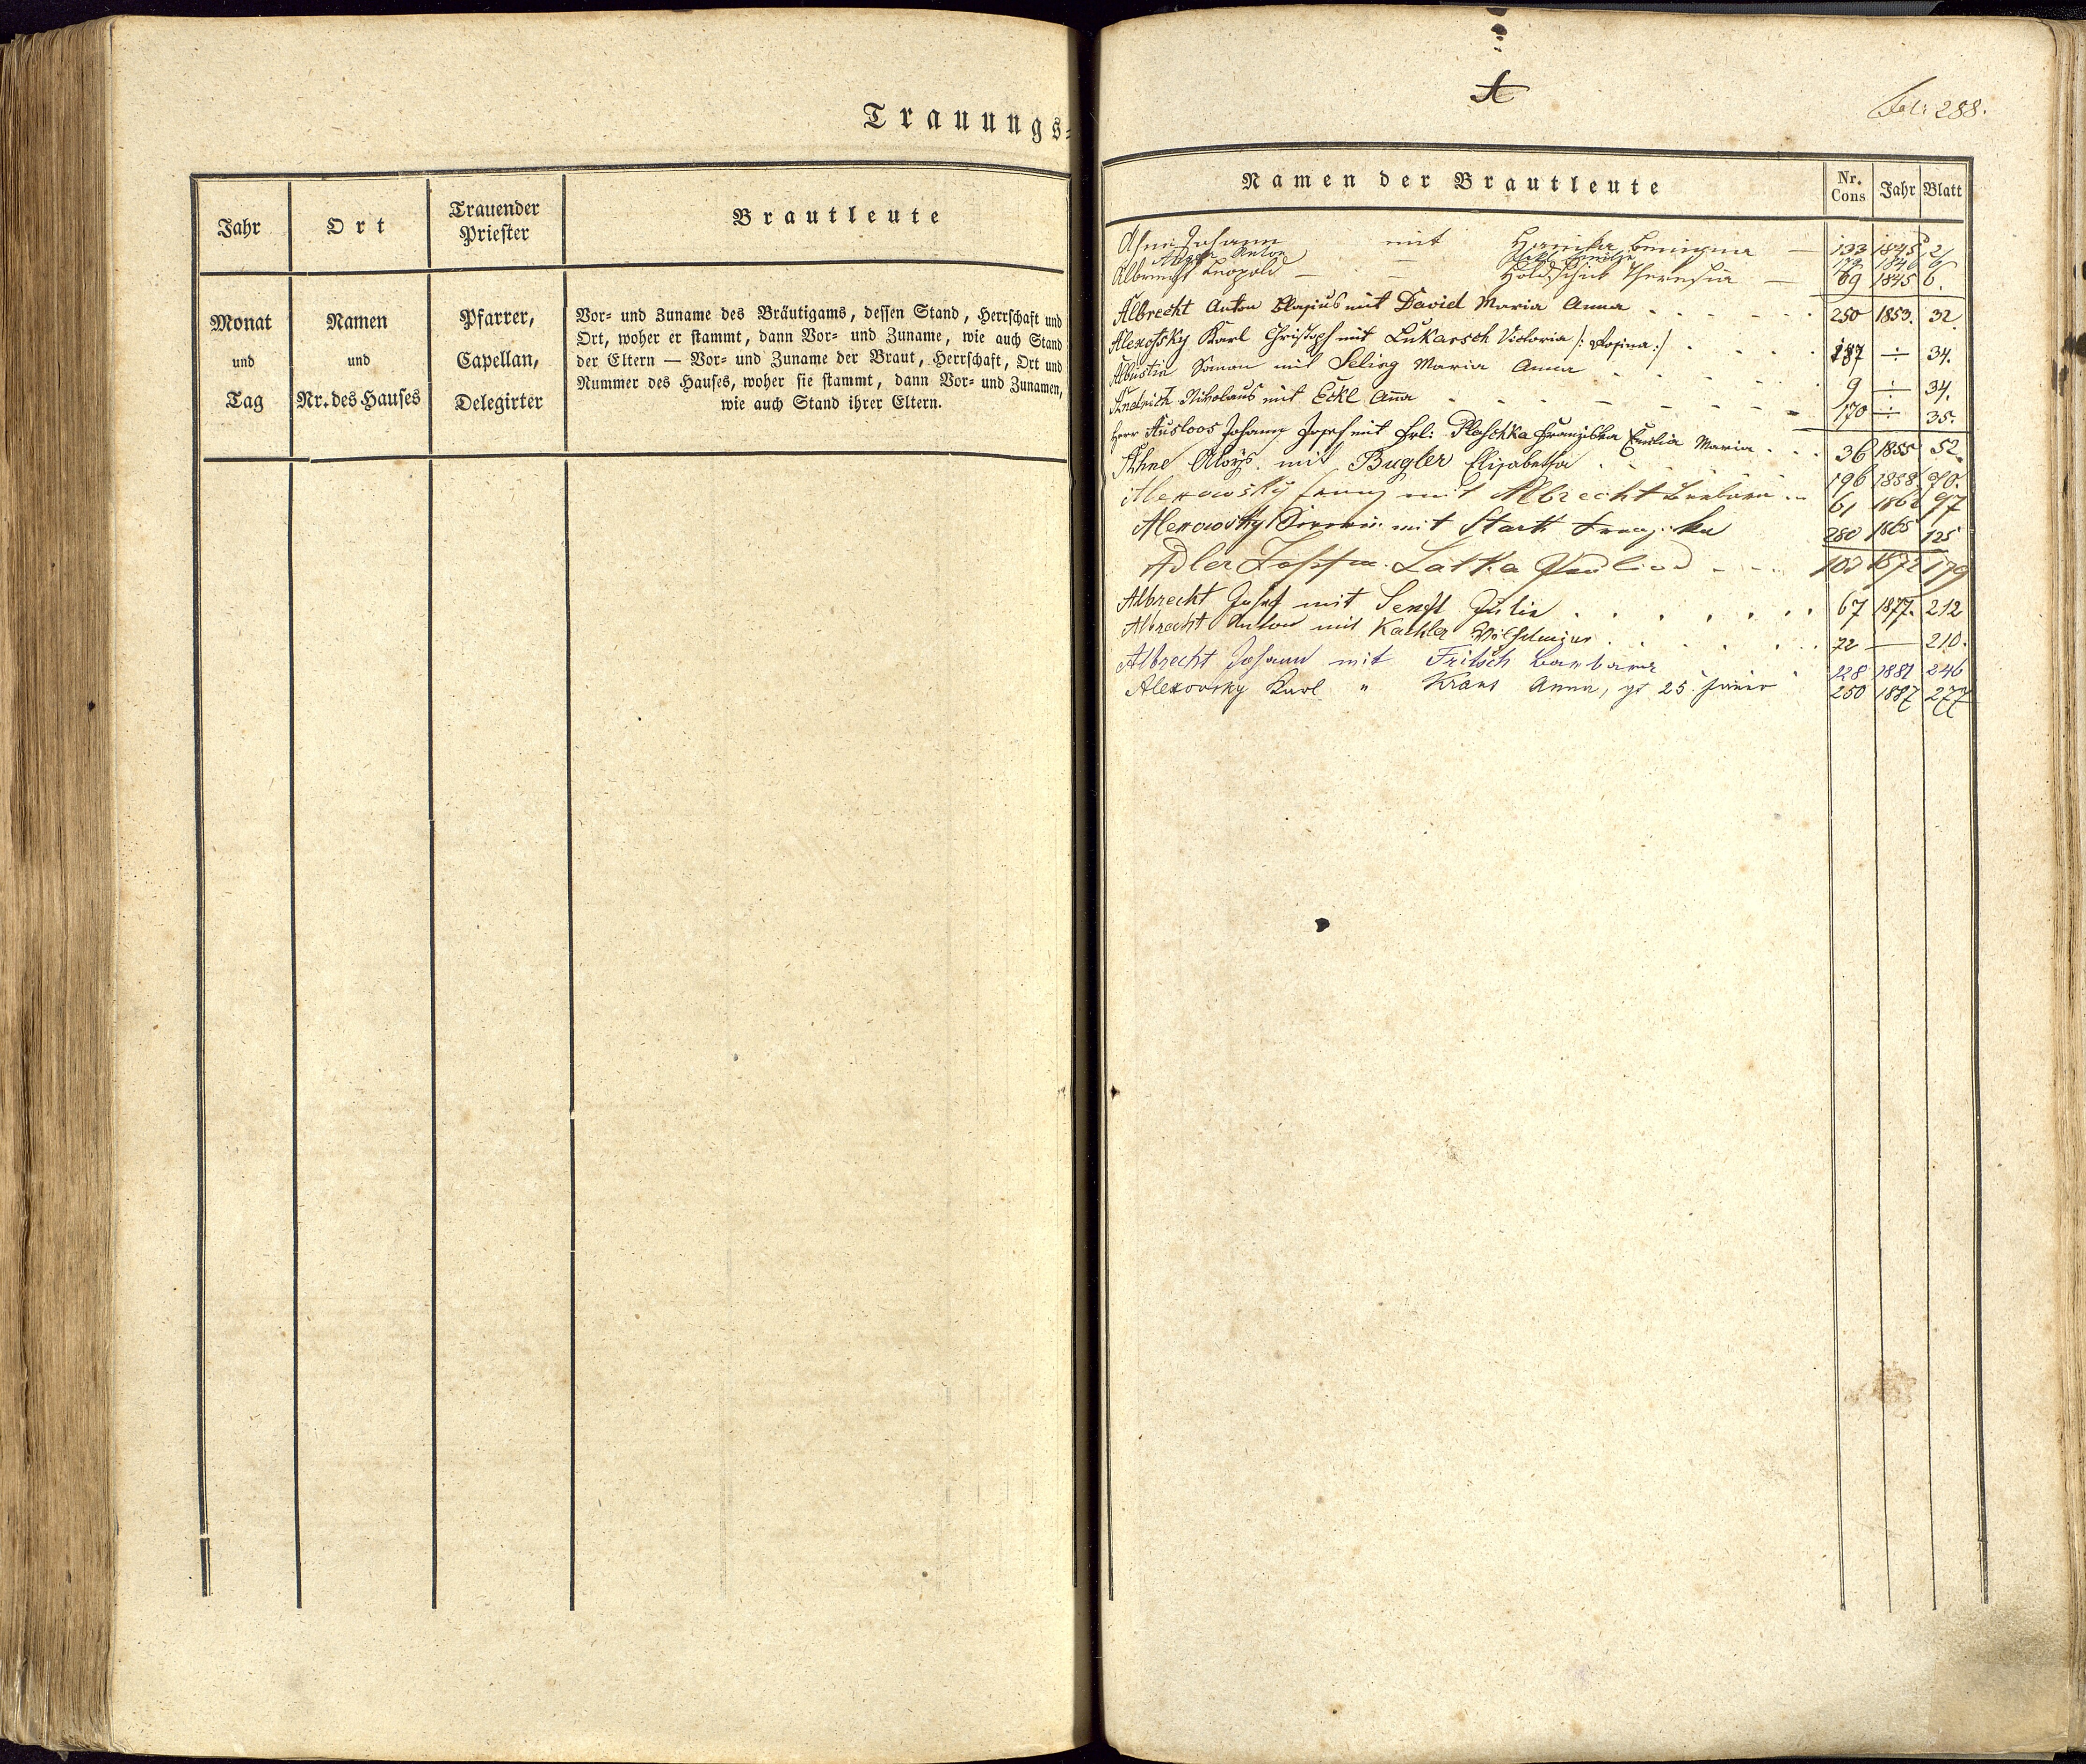 Trauungs=
Jahr
Monat
und
Tag
Ort
Namen
und
Nr. des Hauses
Trauender
Priester
Pfarrer,
Capellan,
Delegirter
Brautleute
Vor- und Zuname des Bräutigams, dessen Stand, Herrschaft und
Ort, woher er stammt, dann Vor- und Zuname, wie auch Stand
der Eltern — Vor- und Zuname der Braut, Herrschaft, Ort und
Nummer des Hauses, woher sie stammt, dann Vor- und Zunamen,
wie auch Stand ihrer Eltern.
A
Fol: 288.
Namen der Brautleute Nr. Cons Jahr Blatt
Johann mit Benigna — 133 1845 2
Anton — 1846 6
Albrecht Leopold — — Theresia — 69 1845 6.
Albrecht Anton Blasius mit David Maria Anna 250 1853. 32.
Alexofsky Karl Christoph mit Lukarsch Victoria /: Rosina :/ 187 ÷ 34.
Simon mit Seling Maria Anna 9 ÷ 34.
Andrich Nikolaus mit Eckl Anna 170 ÷ 35.
Herr Ausloos Johann Josef mit Frl: Plaschka Franziska Emilia Maria 36 1855 52.
Ahne Aloys mit Bugler Elisabetha 196 1858. 70.
Alexowsky Franz mit Albrecht Barbara 61 1862 97
Alexowsky mit Stark 280 1865 125
Adler Latka 103 1872 179
Albrecht Josef mit Senft Julie 67 1877. 212
Albrecht Anton mit Kachler 72 — 210.
Albrecht Johann mit Fritsch Barbara 228 1881 246
Alexovsky Karl " Kraus Anna, 25. Jänner 250 1887 277